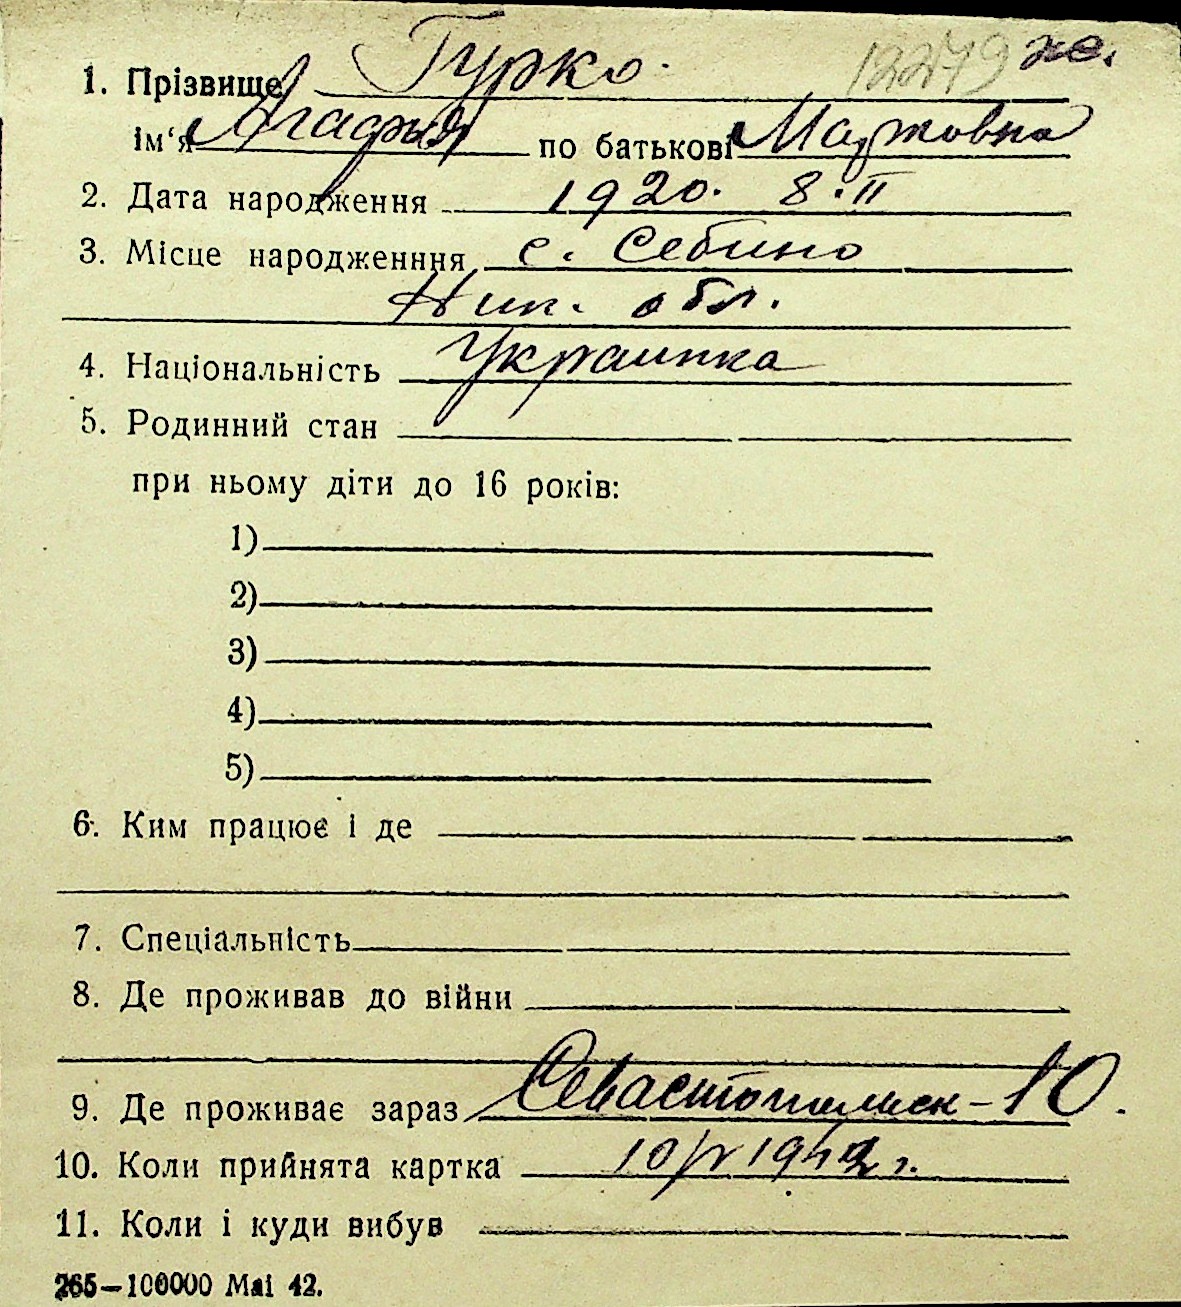 12279 же.
1. Прізвище Гурко.
ім‘я Агафья по батькові Марковна
2. Дата народження 1920. 8.II
3. Місце народженння с. Себино
Ник. обл.
4. Національність Украинка
5. Родинний стан
при ньому діти до 16 років:
1)
2)
3)
4)
5)
6. Ким працює і де
7. Спеціальність
8. Де проживав до війни
9. Де проживає зараз Севастопольск-10.
10. Коли прийнята картка 1942 г.
11. Коли і куди вибув
265—100000 Маі 42.